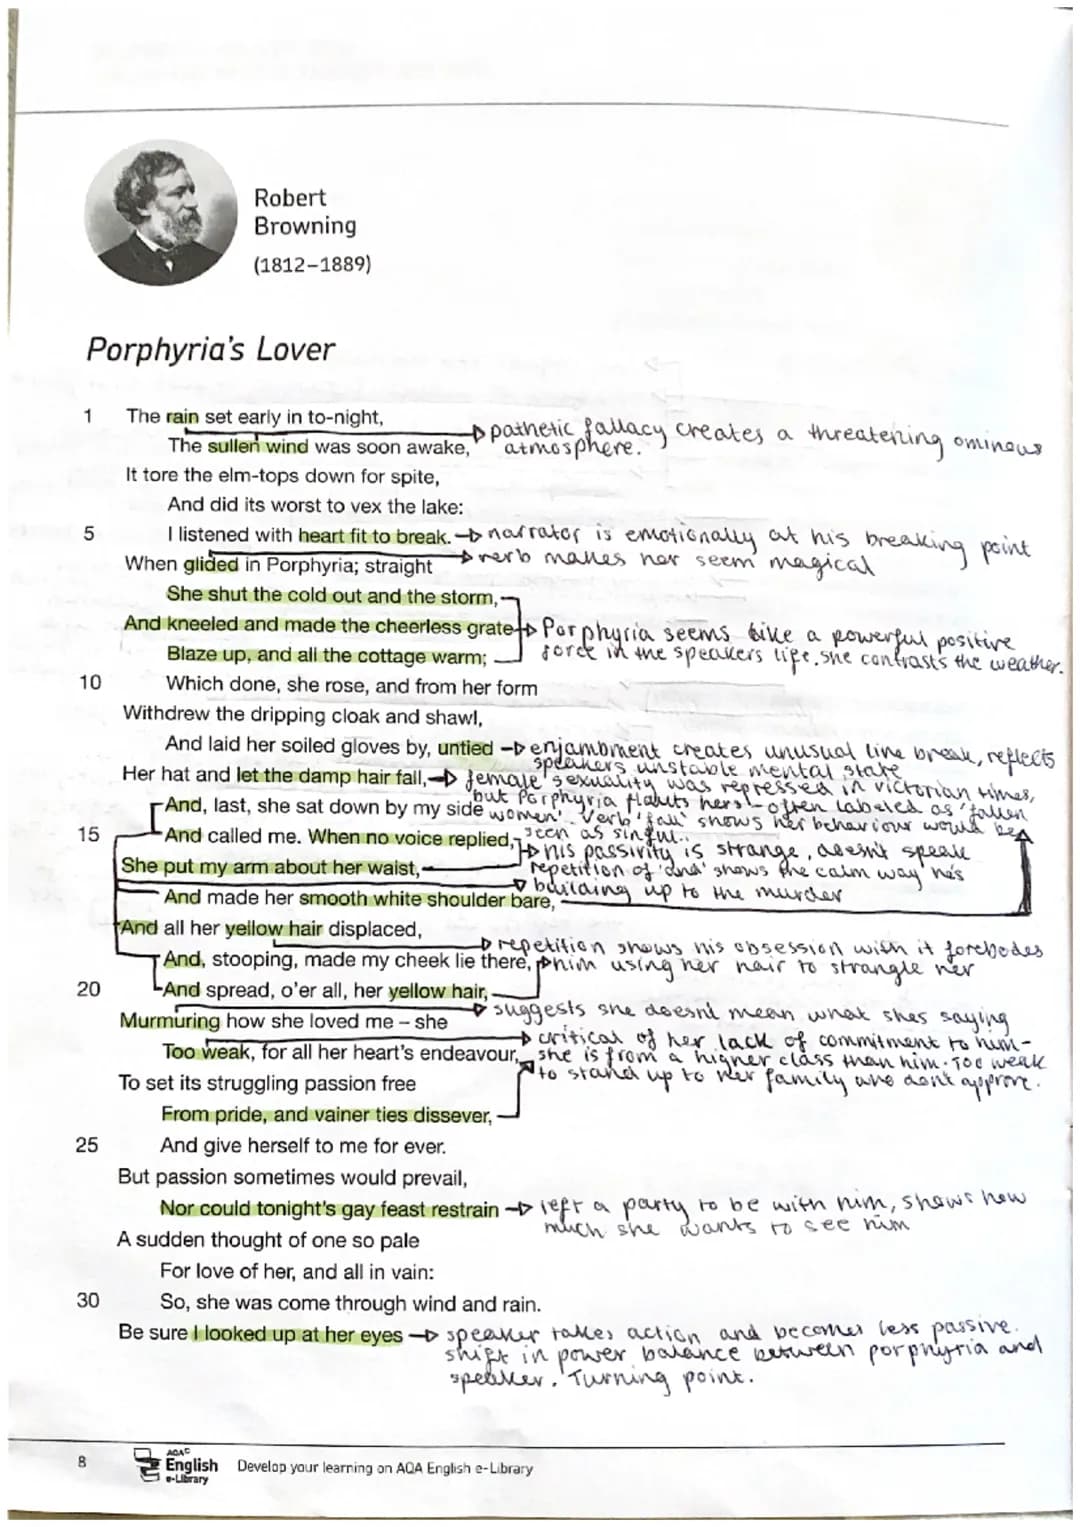 Robert
Browning
(1812–1889)
Porphyria's Lover
1 The rain set early in to-night,
The sullen wind was soon awake,
→ pathetic fallacy creates a threatening ominous
atmosphere.
It tore the elm-tops down for spite,
And did its worst to vex the lake:
5 I listened with heart fit to break. → narrator is emotionally at his breaking point
When glided in Porphyria; straight → verb makes her seem magical
She shut the cold out and the storm,
And kneeled and made the cheerless grate → Porphyria seems like a powerful positive
Blaze up, and all the cottage warm; force in the speakers life. She contrasts the weather.
10 Which done, she rose, and from her form
Withdrew the dripping cloak and shawl,
And laid her soiled gloves by, untied → enjambment creates unusual line break, reflects
speakers unstable mental state
Her hat and let the damp hair fall, → female sexuality was repressed in victorian times,
but Porphyria flaunts hers - often labeled as 'fallen
And, last, she sat down by my side women'. Verb 'fall' shows her behaviour would be
15 And called me. When no voice replied, seen as sinful..
→ his passivity is strange, doesn't speak
She put my arm about her waist, repetition of 'and' shows the calm way he's
→ building up to the murder
And made her smooth white shoulder bare,
And all her yellow hair displaced,
→ repetition shows his obsession with it forebodes
And, stooping, made my cheek lie there, him using her hair to strangle her
20 And spread, o'er all, her yellow hair,
→ suggests she doesnt mean what shes saying
Murmuring how she loved me – she
→ critical of her lack of commitment to him-
Too weak, for all her heart's endeavour, she is from a higher class than him. Too weak
to stand up to her family who dont approve.
To set its struggling passion free
From pride, and vainer ties dissever,
25 And give herself to me for ever.
But passion sometimes would prevail,
Nor could tonight's gay feast restrain → left a party to be with him, shows how
much she wants to see him
A sudden thought of one so pale
For love of her, and all in vain:
30 So, she was come through wind and rain.
Be sure I looked up at her eyes → speaker takes action and becomes less passive.
shift in power balance between porphyria and
speaker. Turning point.
8
AQA
English
e-Library
Develop your learning on AQA English e-Library